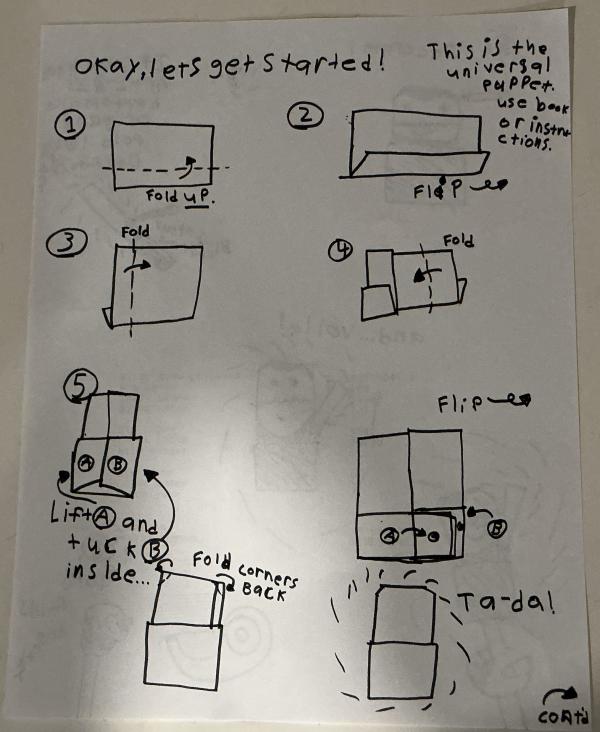 Okay, lets get started!
This is the
universal
puppet.
use book
or instru
ctions.
1
Fold up.
2
Flip
3
Fold
4
Fold
5
A B
Lift A and
tuck B
inside...
Flip
A B
Fold corners
Back
Ta-da!
cont'd